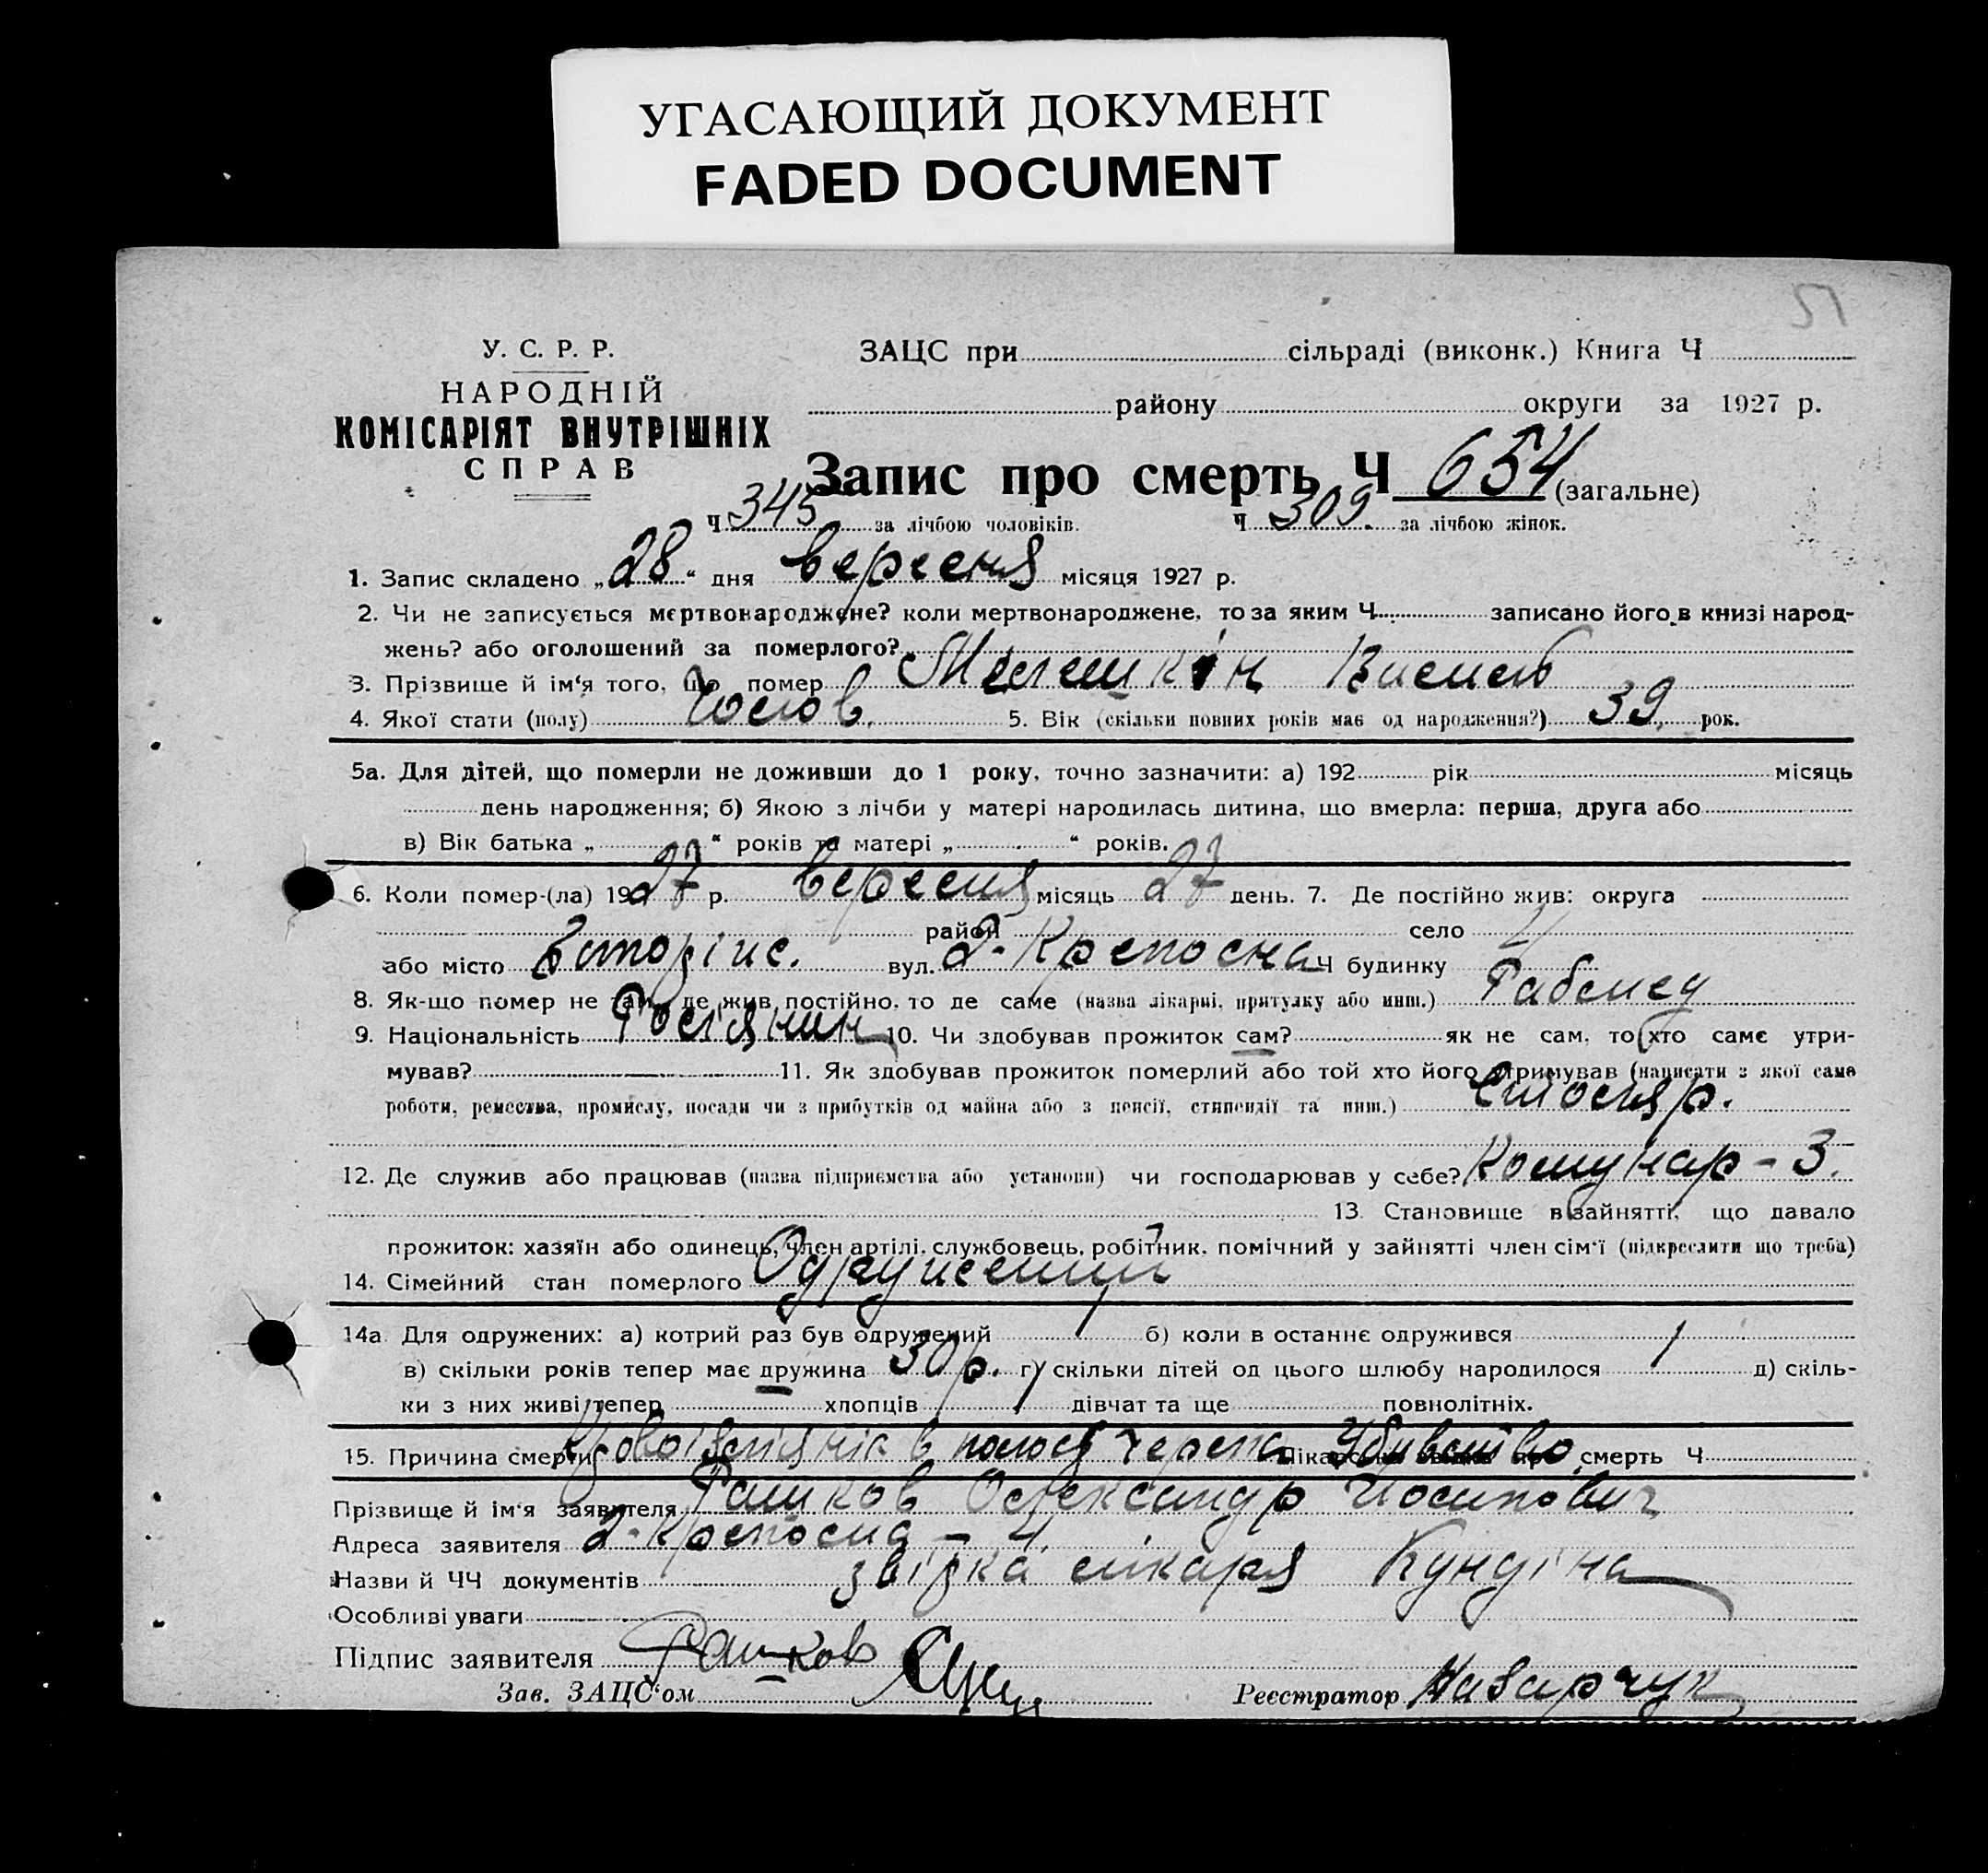 УГАСАЮЩИЙ ДОКУМЕНТ
FADED DOCUMENT
51
У. С. Р. Р.
НАРОДНІЙ
КОМІСАРІЯТ ВНУТРІШНІХ
СПРАВ
ЗАЦС при сільраді (виконк.) Книга Ч
району округи за 1927 р.
Запис про смерть Ч 654 (загальне)
Ч 345 за лічбою чоловіків. Ч 309. за лічбою жінок.
1. Запис складено „28“ дня вересня місяця 1927 р.
2. Чи не записується мертвонароджене? коли мертвонароджене, то за яким Ч записано його в книзі народ-
жень? або оголошений за померлого?
3. Прізвище й ім'я того, що помер
4. Якої стати (полу) Чолов. 5. Вік (скільки повних років має од народження?) 39. рок.
5а. Для дітей, що померли не доживши до 1 року, точно зазначити: а) 192 рік місяць
день народження; б) Якою з лічби у матері народилась дитина, що вмерла: перша, друга або
в) Вік батька „ “ років та матері „ “ років.
6. Коли помер-(ла) 1927 р. вересня місяць 27 день. 7. Де постійно жив: округа
район село
або місто Запоріж. вул. 2-Крепосна Ч будинку 4
8. Як-що помер не там, де жив постійно, то де саме (назва лікарні, притулку або инш.) Рабмед
9. Національність Росіянин 10. Чи здобував прожиток сам? як не сам, то хто саме утри-
мував? 11. Як здобував прожиток померлий або той хто його утримував (написати з якої саме
роботи, ремества, промислу, посади чи з прибутків од майна або з пенсії, стипендії та инш.) Столяр.
12. Де служив або працював (назва підприємства або установи) чи господарював у себе? Комунар-3.
13. Становище в зайнятті, що давало
прожиток: хазяїн або одинець, член артілі, службовець, робітник, помічний у зайнятті член сім'ї (підкреслити що треба)
14. Сімейний стан померлого Одружений
14а. Для одружених: а) котрий раз був одружений 1 б) коли в останнє одружився
в) скільки років тепер має дружина 30 р. г) скільки дітей од цього шлюбу народилося 1 д) скіль-
ки з них живі тепер хлопців 1 дівчат та ще повнолітніх.
15. Причина смерти в полость черепа Убивство смерть Ч
Прізвище й ім'я заявителя Рашков Олександр Йосипович
Адреса заявителя 2-Крепосна - 4.
Назви й ЧЧ документів звідка лікаря Кундіна
Особливі уваги
Підпис заявителя Рашков
Зав. ЗАЦС'ом Реєстратор Назарчук